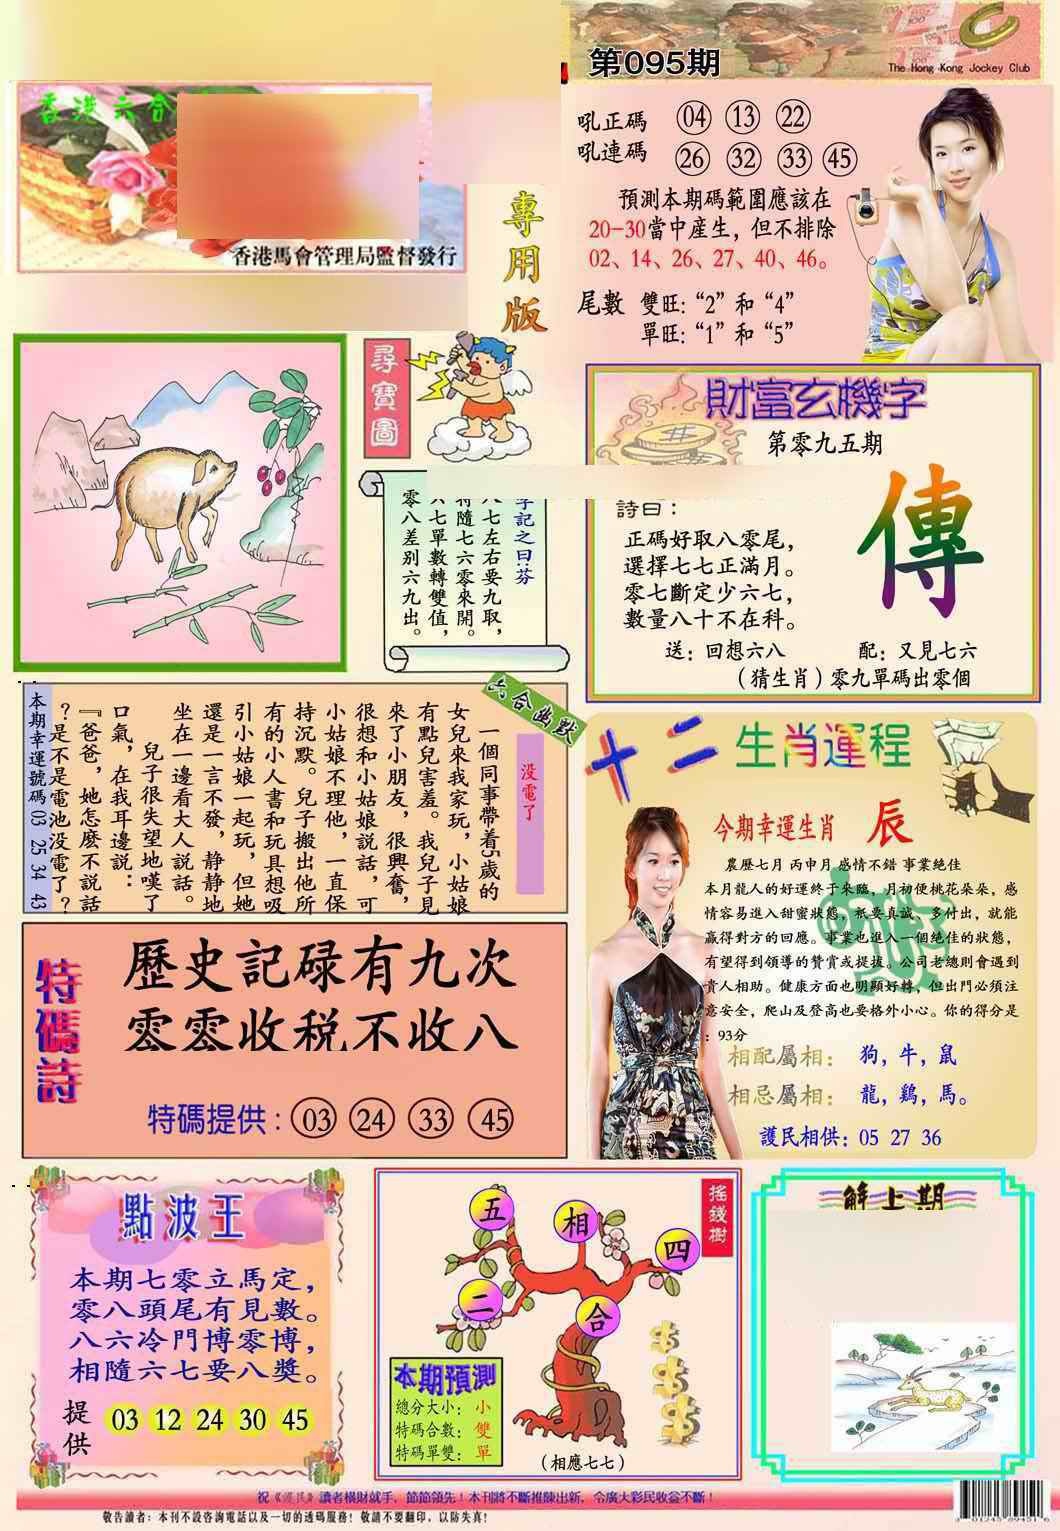 第095期
The Hong Kong Jockey Club
香港六合
香港馬會管理局監督發行
專用版
吼正碼 04 13 22
吼連碼 26 32 33 45
預測本期碼範圍應該在
20-30當中産生，但不排除
02、14、26、27、40、46。
尾數 雙旺:“2”和“4”
單旺:“1”和“5”
尋寶圖
字記之曰:芬
八七左右要九取，
特隨七六零來開。
六七單數轉雙值，
零八差别六九出。
財富玄機字
第零九五期
詩曰：
正碼好取八零尾，
選擇七七正滿月。
零七斷定少六七，
數量八十不在科。
傳
送：回想六八 配：又見七六
（猜生肖）零九單碼出零個
六合幽默
没電了
一個同事帶着5歲的
女兒來我家玩，小姑娘
有點兒害羞。我兒子見
來了小朋友，很興奮，
很想和小姑娘說話，可
小姑娘不理他，一直保
持沉默。兒子搬出他所
有的小人書和玩具想吸
引小姑娘一起玩，但她
還是一言不發，静静地
坐在一邊看大人説話。
兒子很失望地嘆了
口氣，在我耳邊説：
『爸爸，她怎麽不說話
？是不是電池没電了？
本期幸運號碼 03 25 34 43
十二生肖運程
今期幸運生肖 辰
農歷七月 丙申月 感情不錯 事業絶佳
本月龍人的好運終于來臨，月初便桃花朵朵，感
情容易進入甜蜜狀態，祇要真誠、多付出，就能
贏得對方的回應。事業也進入一個絶佳的狀態，
有望得到領導的赞賞或提拔。公司老總則會遇到
貴人相助。健康方面也明顯好轉，但出門必須注
意安全，爬山及登高也要格外小心。你的得分是
：93分
相配屬相： 狗，牛，鼠
相忌屬相： 龍，鷄，馬。
護民相供：05 27 36
特碼詩
歷史記碌有九次
零零收税不收八
特碼提供：03 24 33 45
點波王
本期七零立馬定，
零八頭尾有見數。
八六冷門博零博，
相隨六七要八獎。
提供 03 12 24 30 45
摇錢樹
五 相 四
二 合
本期預測
總分大小：小
特碼合數：雙
特碼單雙：單
（相應七七）
解上期
祝《護民》讀者橫財就手，節節領先！本刊將不斷推陳出新，令廣大彩民收益不斷！
敬告讀者：本刊不設咨詢電話以及一切的透碼服務！敬請不要翻印，以防失真！